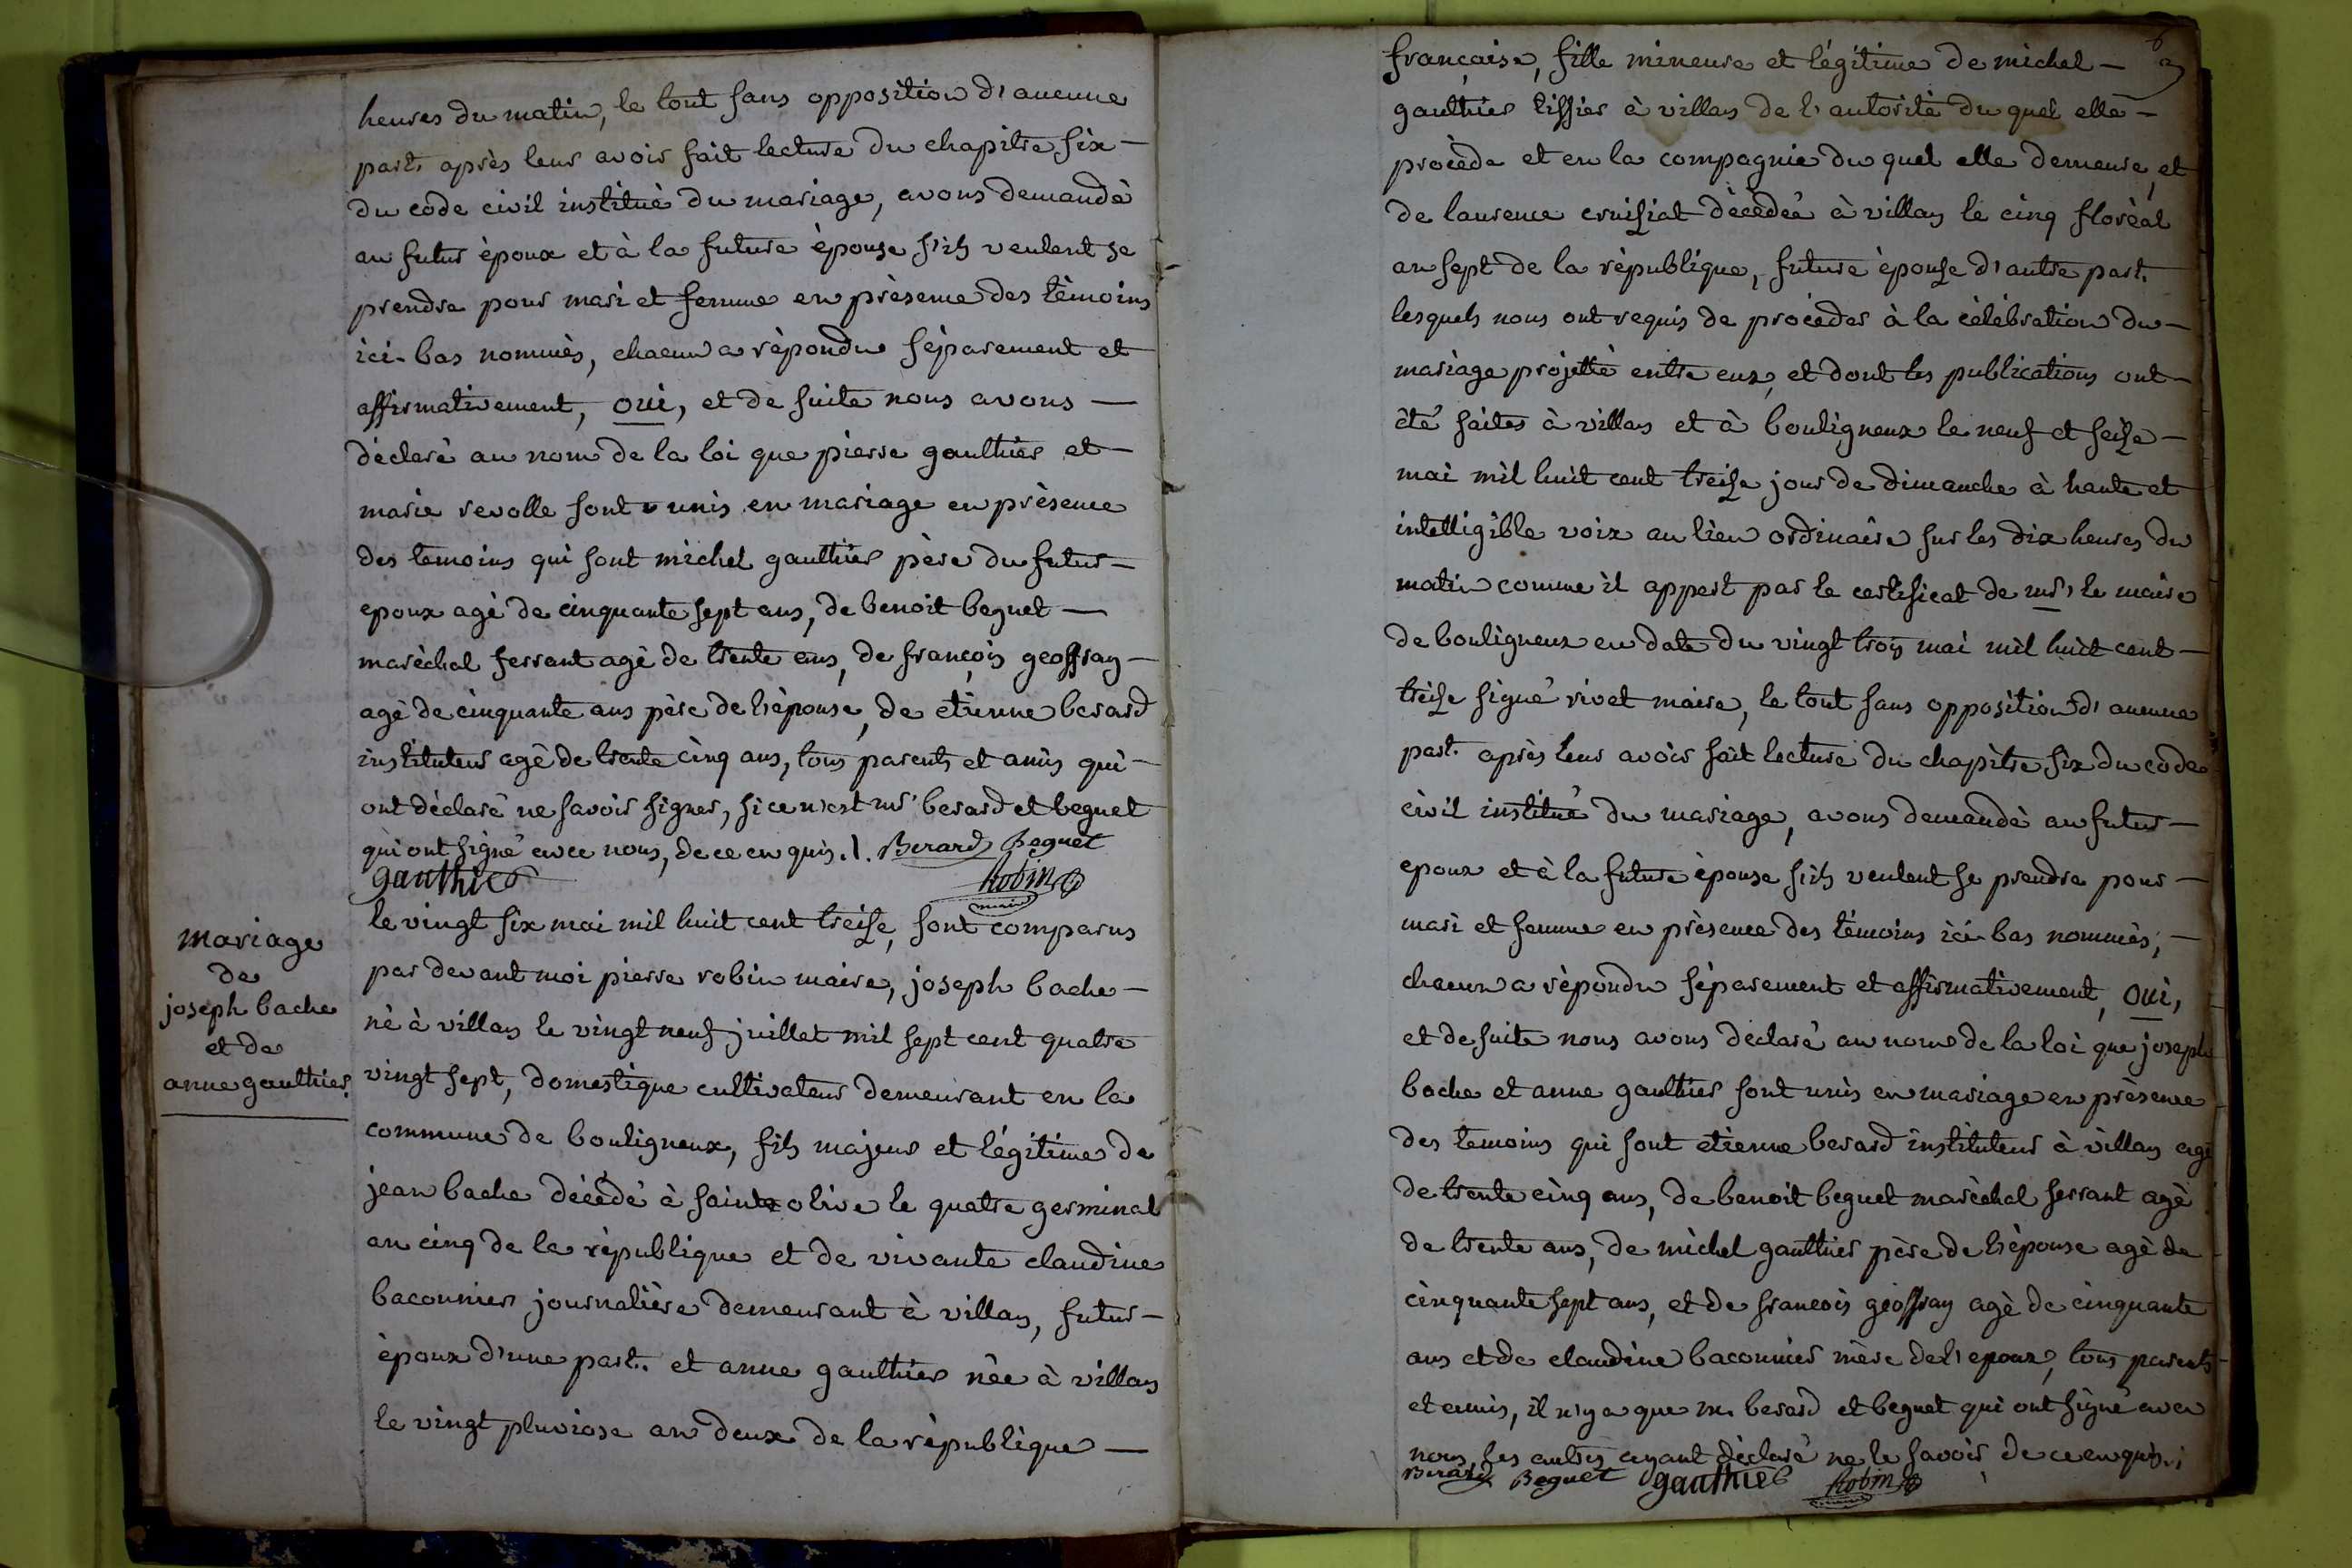 heures du matin, le tout sans opposition d'aucune
part. après leur avoir fait lecture du chapitre six —
du code civil institué du mariage, avons demandé
au futur époux et à la future épouse s'ils veulent se
prendre pour mari et femme en présence des témoins
ici-bas nommés, chacun a répondu séparement et
affirmativement, oui, et de suite nous avons —
déclaré au nom de la loi que pierre gaulthier et —
marie revolle sont unis en mariage en présence
des temoins qui sont michel gaulthier père du futur —
epoux agé de cinquante sept ans, de benoit beguet —
maréchal ferrant agé de trente ans, de françois geoffray —
agé de cinquante ans père de l'épouse, de etienne berard
instituteur agé de trente cinq ans, tous parents et amis qui —
ont déclaré ne savoir signer, si ce n'est mrs berard et beguet
qui ont signé avec nous, de ce enquis. Berard Beguet
gauthier Robin
maire
mariage
de
joseph bache
et de
anne gaulthier.
le vingt six mai mil huit cent treise, sont comparus
par devant moi pierre robin maire, joseph bache —
né à villars le vingt neuf juillet mil sept cent quatre
vingt sept, domestique cultivateur demeurant en la
commune de bouligneux, fils majeur et légitime de
jean bache décédé à sainte olive le quatre germinal
an cinq de la république et de vivante claudine
baconnier journalière demeurant à villars, futur —
époux d'une part. et anne gaulthier née à villars
le vingt pluviose an deux de la république —
française, fille mineure et légitime de michel —
gaulthier tissier à villars de l'autorité du quel elle —
procède et en la compagnie du quel elle demeure, et
de laurence cruisiat décédée à villars le cinq floréal
an sept de la république, future épouse d'autre part.
lesquels nous ont requis de procéder à la célébration du —
mariage projetté entre eux, et dont les publications ont —
été faites à villars et à bouligneux le neuf et seise —
mai mil huit cent treise jour de dimanche à haute et
intelligible voix au lieu ordinaire sur les dix heures du
matin comme il appert par le certificat de mr le maire
de bouligneux en date du vingt trois mai mil huit cent —
treise signé rivet maire, le tout sans opposition d'aucune
part. après leur avoir fait lecture du chapitre six du code
civil institué du mariage, avons demandé au futur —
epoux et à la future épouse s'ils veulent se prendre pour —
mari et femme en présence des témoins ici-bas nommés, —
chacun a répondu séparement et affirmativement, oui,
et de suite nous avons déclaré au nom de la loi que joseph
bache et anne gaulthier sont unis en mariage en présence
des temoins qui sont etienne berard instituteur à villars agé
de trente cinq ans, de benoit beguet maréchal ferrant agé
de trente ans, de michel gaulthier père de l'épouse agé de
cinquante sept ans, et de francois geoffray agé de cinquante
ans et de claudine baconnier mère de l'epoux, tous parents —
et amis, il n'y a que m. berard et beguet qui ont signé avec
nous, les autres ayant déclaré ne le savoir de ce enquis.
Berard Beguet gauthier Robin